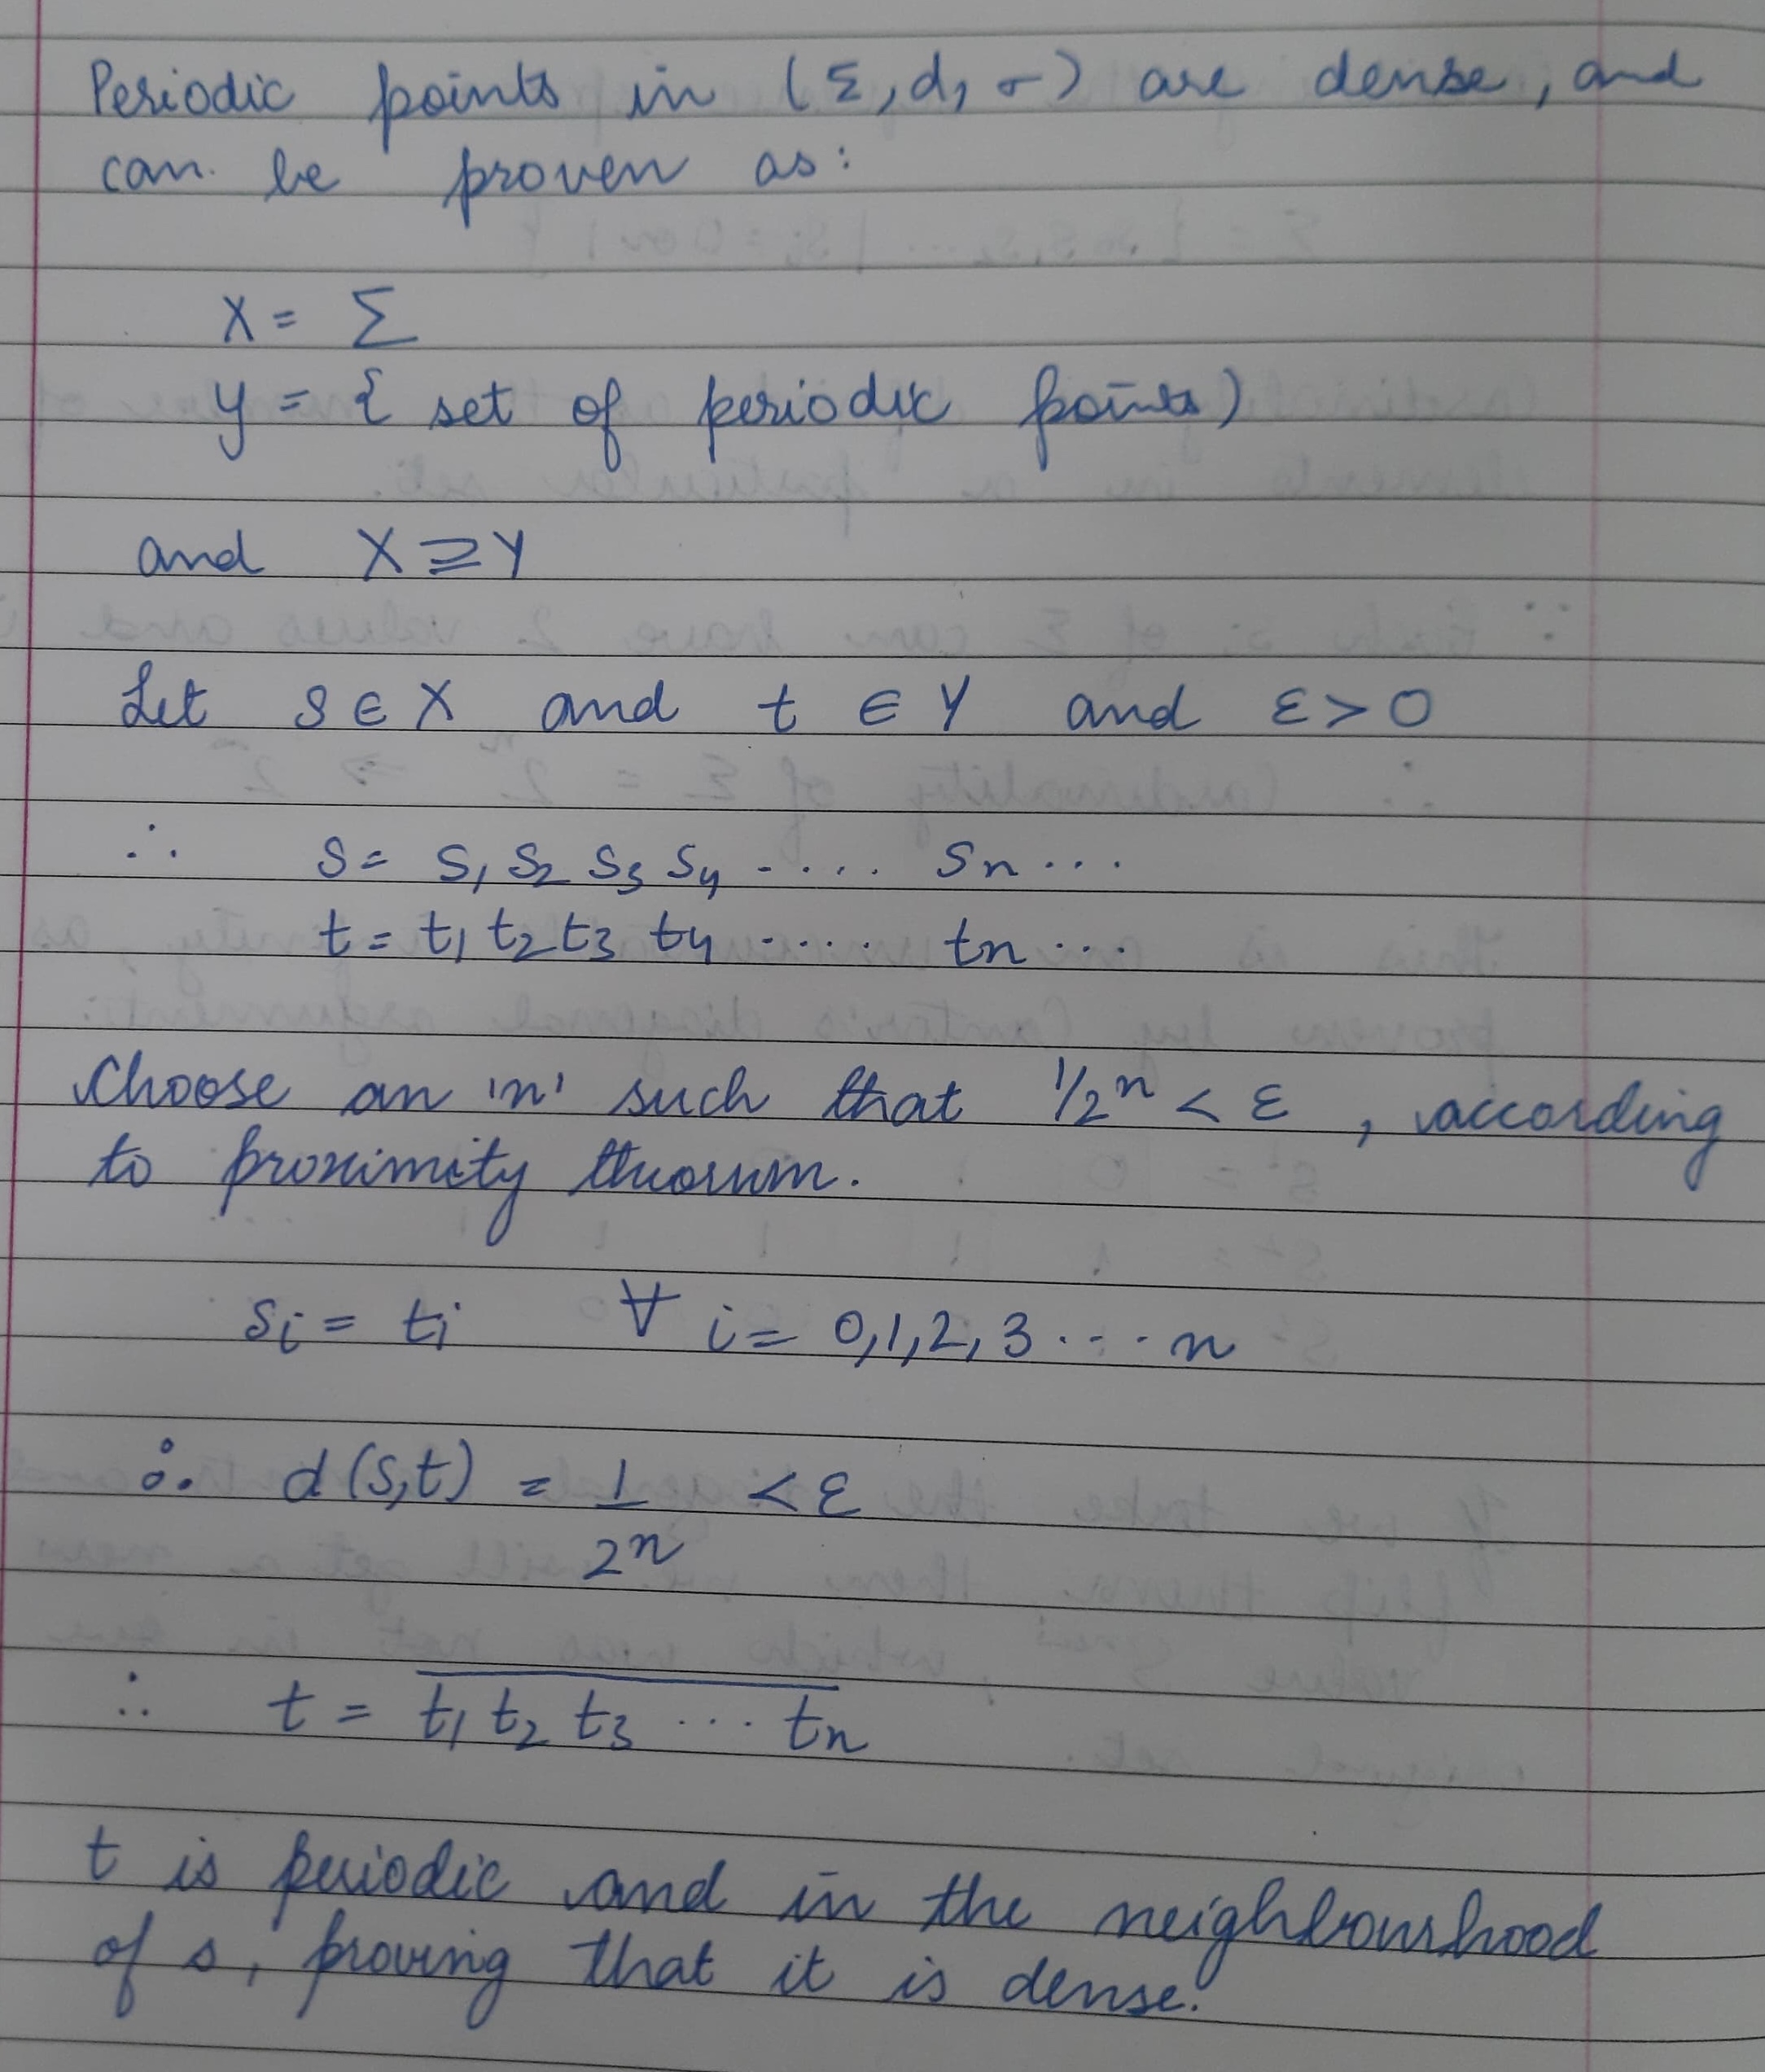 Periodic points in (Σ, d, σ) are dense, and
can be proven as:
X = Σ
Y = { set of periodic points)
and X ⊇ Y
Let S ∈ X and t ∈ Y and ε > 0
∴ S = S₁ S₂ S₃ S₄ ..... Sn ...
t = t₁ t₂ t₃ t₄ ..... tn ...
Choose an 'n' such that 1/2ⁿ < ε , according
to proximity theorum.
Si = ti ∀ i = 0,1,2,3 ... n
∴ d(S,t) = 1/2ⁿ < ε
∴ t = \overline{t₁ t₂ t₃ ... tn}
t is periodic and in the neighbourhood
of s, proving that it is dense.